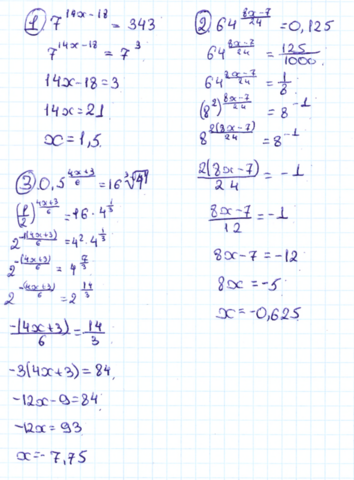 1. 7^(14x-18) = 343
7^(14x-18) = 7^3
14x-18=3
14x=21
x=1,5.
2. 64^((8x-7)/24) =0,125
64^((8x-7)/24) = 125/1000
64^((8x-7)/24) = 1/8
(8^2)^((8x-7)/24) = 8^(-1)
8^(2(8x-7)/24) = 8^(-1)
2(8x-7)/24 = -1
(8x-7)/12 = -1
8x-7=-12
8x=-5
x=-0,625
3. 0,5^((4x+3)/6) = 16 ∛4
(1/2)^((4x+3)/6) = 16·4^(1/3)
2^(-1(4x+3)/6) = 4^2·4^(1/3)
2^(-(4x+3)/6) = 4^(7/3)
2^(-(4x+3)/6) = 2^(14/3)
-(4x+3)/6 = 14/3
-3(4x+3)=84
-12x-9=84
-12x=93
x=-7,75